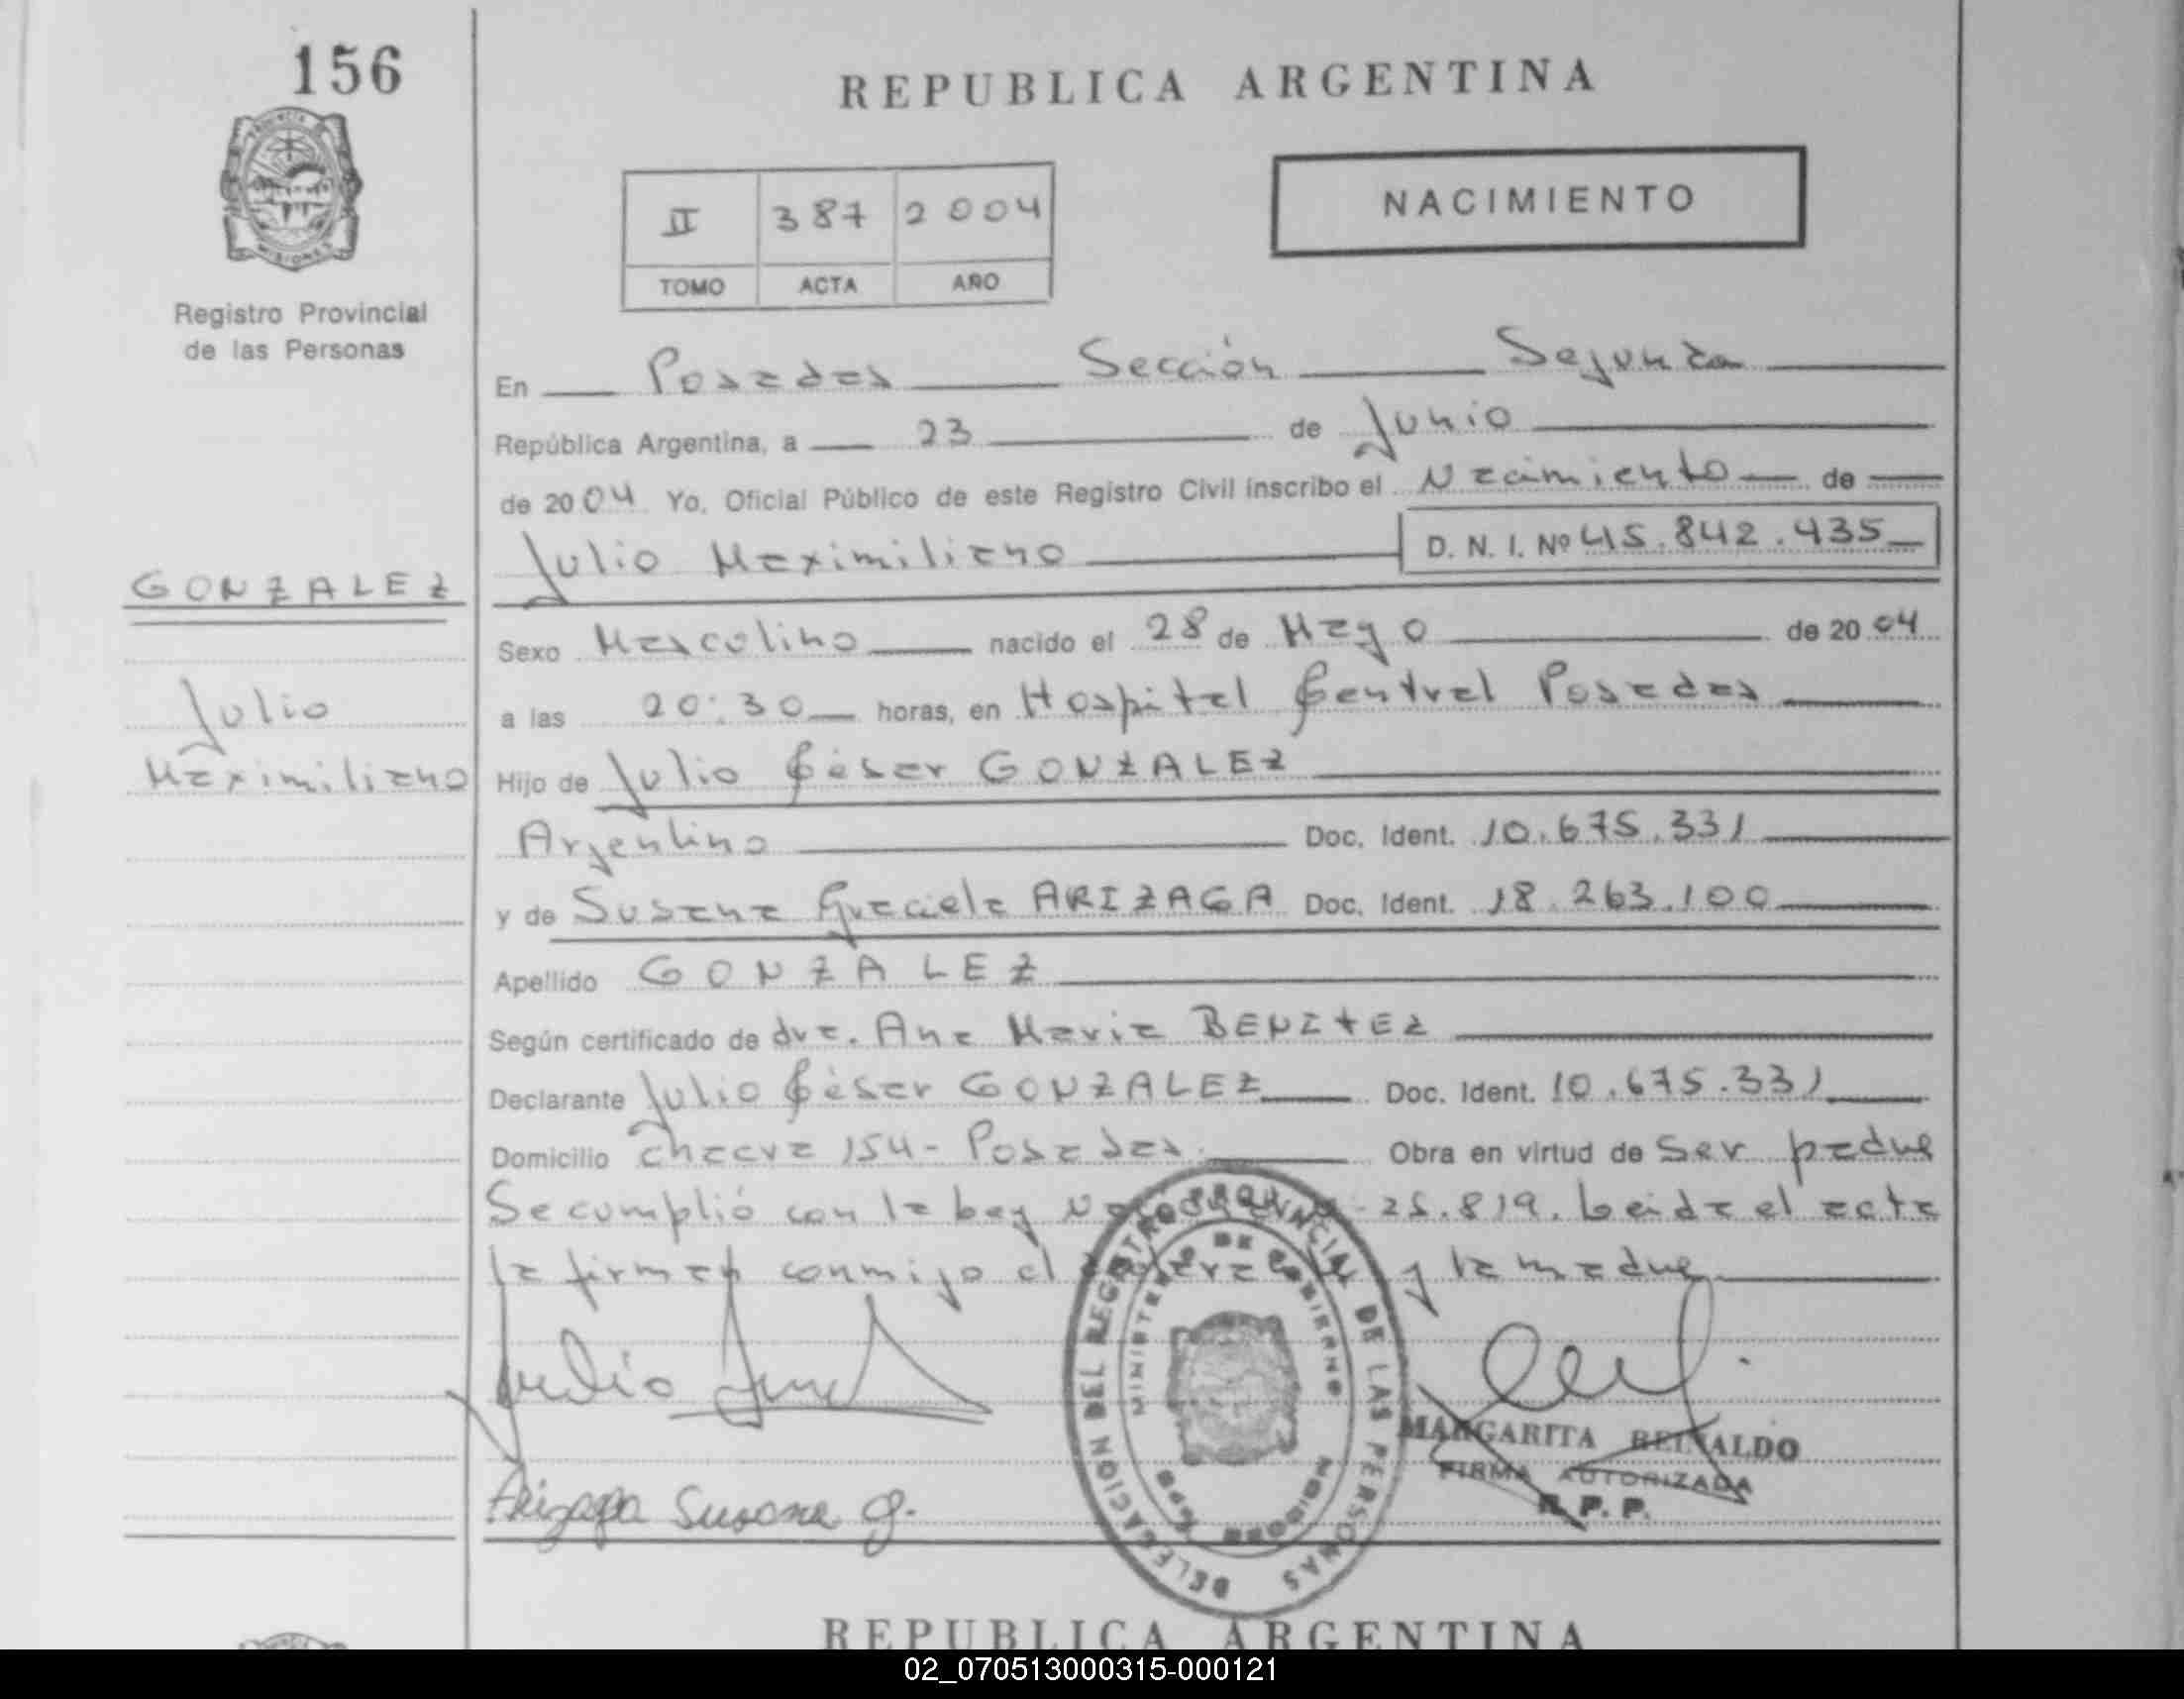 156
REPUBLICA ARGENTINA
PROVINCIA DE MISIONES
NACIMIENTO
II 387 2004
TOMO ACTA AÑO
Registro Provincial
de las Personas
En Posadas Sección Segunda
República Argentina, a 23 de Junio
de 2004 Yo, Oficial Público de este Registro Civil inscribo el Nacimiento de
Julio Maximiliano D. N. I. Nº 45.842.435
GONZALEZ
Sexo Masculino nacido el 28 de Mayo de 2004
Julio
a las 20:30 horas, en Hospital Central Posadas
Maximiliano
Hijo de Julio César GONZALEZ
Argentino Doc. Ident. 10.675.331
y de Susana Graciela ARIZAGA Doc. Ident. 18.263.100
Apellido GONZALEZ
Según certificado de dra. Ana Maria BENITEZ
Declarante Julio César GONZALEZ Doc. Ident. 10.675.331
Domicilio chacra 154 - Posadas. Obra en virtud de ser padre
Se cumplió con la Ley 25.819. Leida el acta
la firman conmigo el y la madre
Julio
Arizaga Susana G.
DELEGACION DEL REGISTRO PROVINCIAL DE LAS PERSONAS
MINISTERIO DE GOBIERNO
MISIONES
MARGARITA REINALDO
FIRMA AUTORIZADA
R. P. P.
REPUBLICA ARGENTINA
02_070513000315-000121